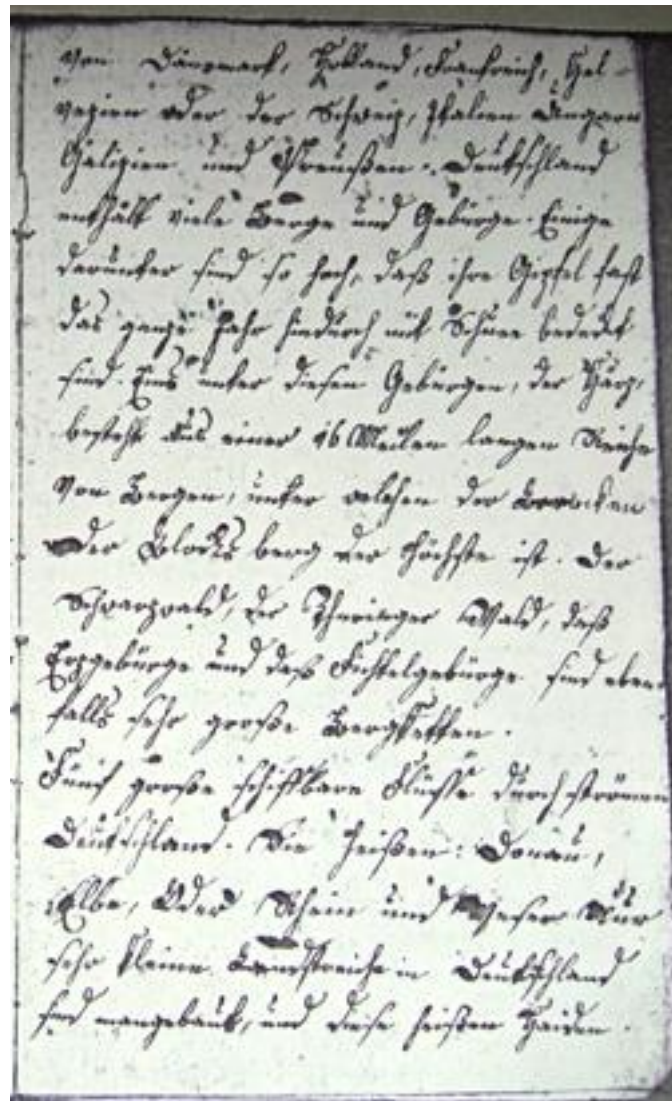 von Dänemark, Holland, Frankreich, Hel-
vezien oder der Schweiz, Italien Ungarn
Galizien und Preußen. Deutschland
enthält viele Berge und Gebürge. Einige
darunter sind so hoch, daß ihre Gipfel fast
das ganze Jahr hindurch mit Schnee bedeckt
sind. Eins unter diesen Gebürgen, der Harz,
besteht aus einer 16 Meilen langen Reihe
von Bergen, unter welchen der Brocken
oder Blocksberg der höchste ist. Der
Schwarzwald, der Thuringer Wald, daß
Erzgebürge und daß Fichtelgebürge sind eben-
falls sehr große Bergketten.
Fünf große schiffbare Flüsse durchströmen
Deutschland. Sie heißen: Donau,
Elbe, Oder Rhein und Weser Nur
sehr kleine Landstreiche in Deutschland
sind unangebaut, und diese heißen Haiden.